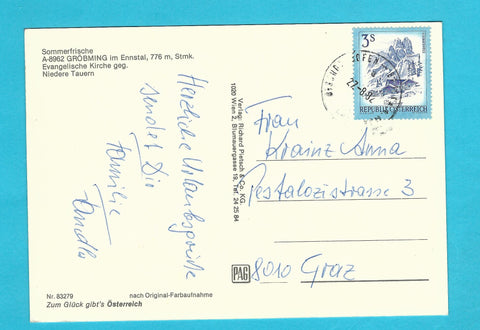 Sommerfrische
A-8962 GRÖBMING im Ennstal, 776 m, Stmk.
Evangelische Kirche geg.
Niedere Tauern
Herzliche Urlaubsgrüße
sendet Dir
Familie
Verlag: Richard Pietsch & Co. KG.
1020 Wien 2, Blumauergasse 19, Tel. 24 25 84
3 S
REPUBLIK ÖSTERREICH
22-8-82
Frau
Krainz Anna
Pestalozistrasse 3
8010 Graz
PAG
Nr. 83279
nach Original-Farbaufnahme
Zum Glück gibt's Österreich